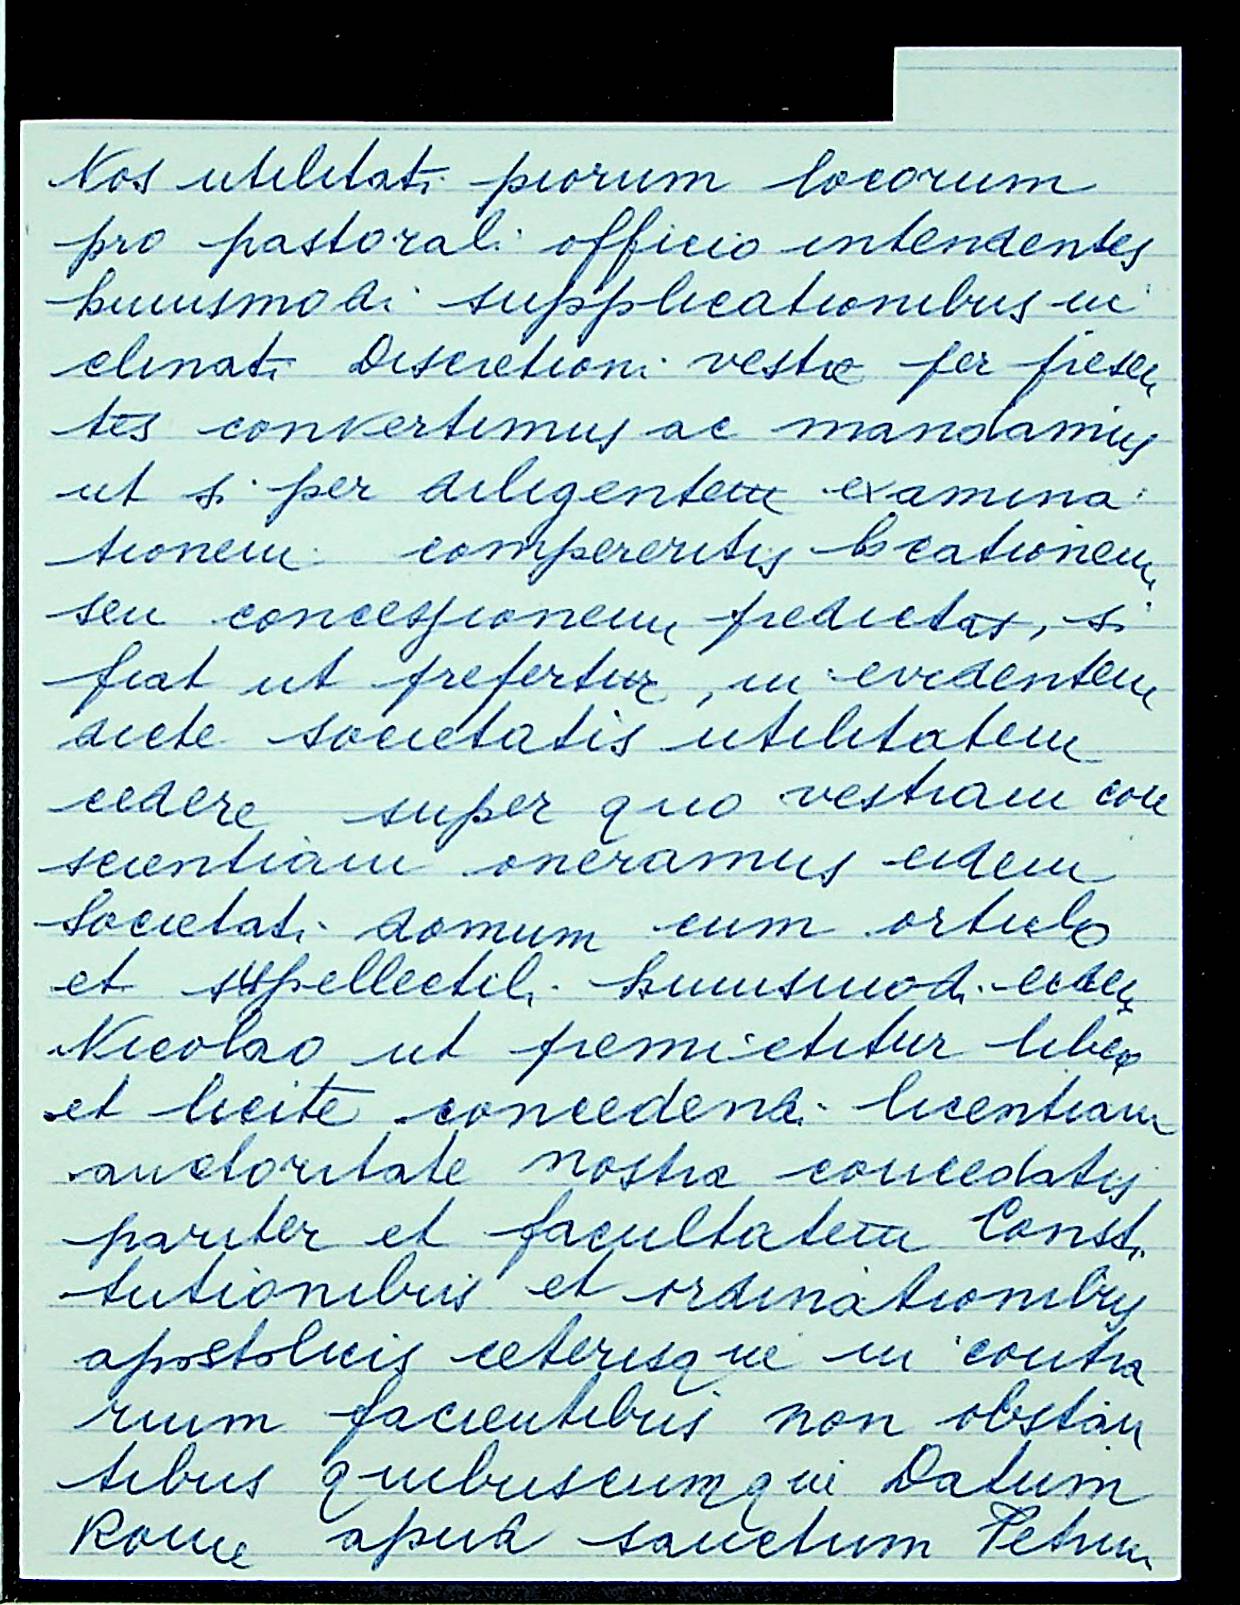 Nos utilitati piorum locorum
pro pastorali officio intendentes
huiusmodi supplicationibus in
clinati Discretioni vestre per presen
tes convertimus ac mandamus
ut si per diligentem examina
tionem compereritis locationem
seu concessionem predictas, si
fiat ut prefertur, in evidentem
dicte societatis utilitatem
cedere super quo vestram con
scientiam oneramus eidem
Societati domum cum orticulo
et suppellectili huiusmodi eidem
Nicolao ut premictitur libere
et licite concedendi licentiam
auctoritate nostra concedatis
pariter et facultatem Consti
tutionibus et ordinationibus
apostolicis ceterisque in contra
rium facientibus non obstan
tibus quibuscumque Datum
Rome apud sanctum Petrum